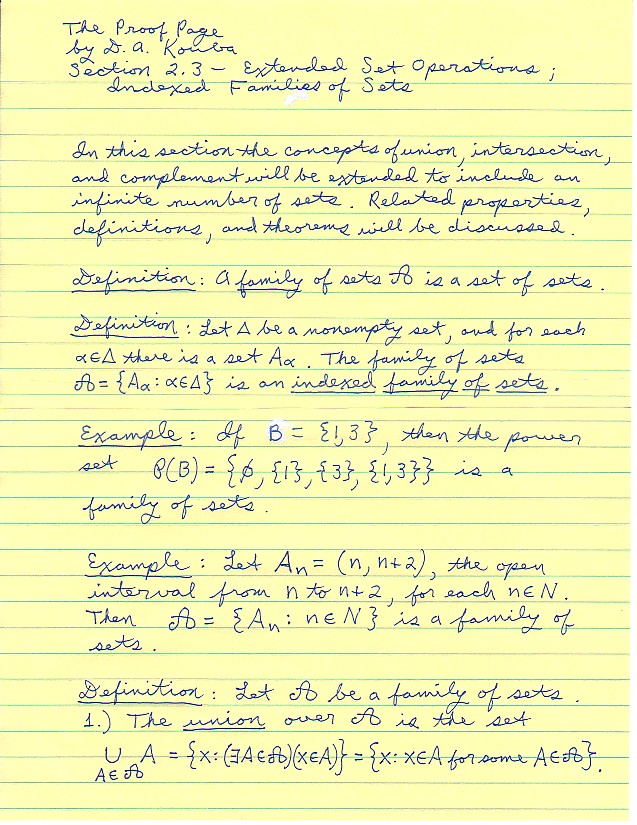 The Proof Page
by D. A. Kouba
Section 2.3 - Extended Set Operations ;
Indexed Families of Sets
In this section the concepts of union, intersection,
and complement will be extended to include an
infinite number of sets. Related properties,
definitions, and theorems will be discussed.
Definition: A family of sets 𝒜 is a set of sets.
Definition: Let Δ be a nonempty set, and for each
α∈Δ there is a set Aα. The family of sets
𝒜 = {Aα : α∈Δ} is an indexed family of sets.
Example: If B = {1,3}, then the power
set P(B) = {∅, {1}, {3}, {1,3}} is a
family of sets.
Example: Let Aₙ = (n, n+2), the open
interval from n to n+2, for each n∈N.
Then 𝒜 = {Aₙ : n∈N} is a family of
sets.
Definition: Let 𝒜 be a family of sets.
1.) The union over 𝒜 is the set
∪ A = {x: (∃A∈𝒜)(x∈A)} = {x: x∈A for some A∈𝒜}.
A∈𝒜